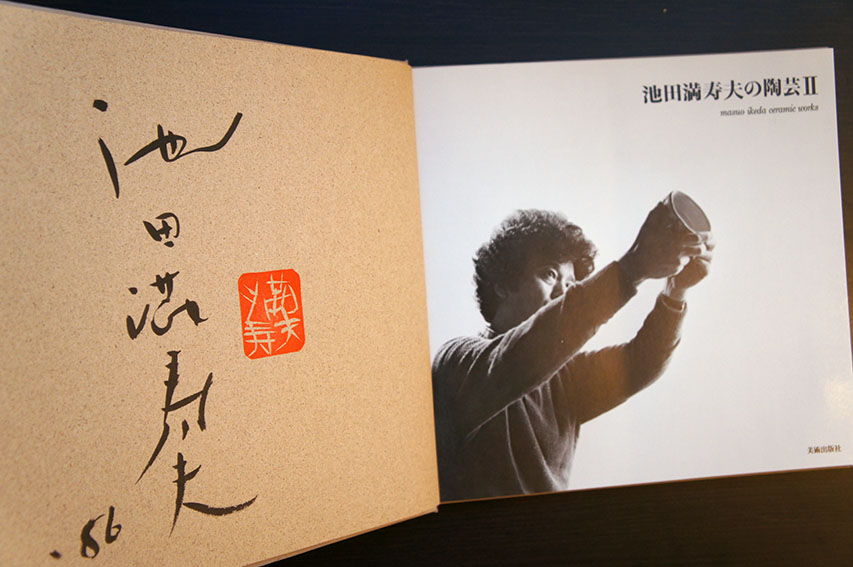 池田満寿夫
'86
満寿夫
池田満寿夫の陶芸II
masuo ikeda ceramic works
美術出版社